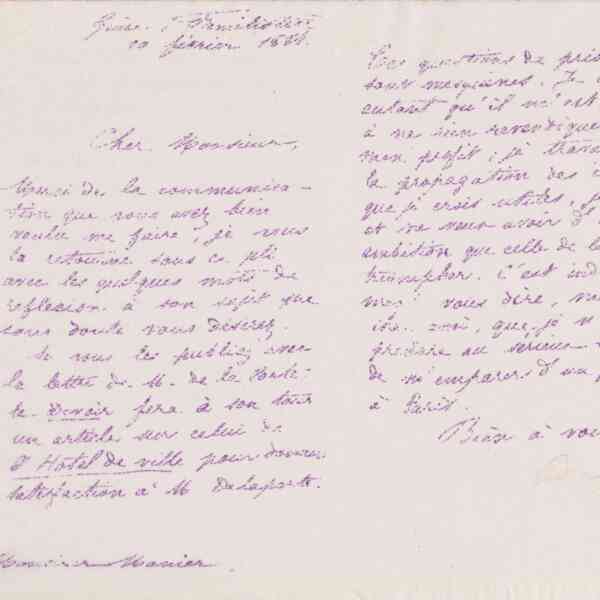 Guise. Familistère
10 février 188
Cher Monsieur,
Merci de la communica-
tion que vous avez bien
voulu me faire ; je vous
la retourne sous ce pli
avec les quelques mots de
réflexion à son sujet que
sans doute vous désirez.
Si vous les publiez avec
la lettre de M. de la Porte
le Devoir fera à son tour
un article sur celui de
l'Hôtel de ville pour donner
satisfaction à M Delaporte.
Monsieur Manier.
Les questions de prio
sont mesquines. Je
autant qu'il m'est
à ne rien revendique
mon profit ; je trava
la propagation des i
que je crois utiles, j
et ne veux avoir d'
ambition que celle de l
triompher. C'est
vous dire,
que je n
prendre au sérieux
de m'emparer d'un
à Paris.
Bien à vou